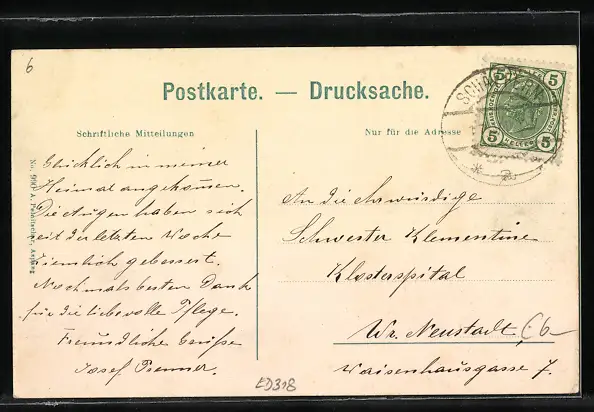 6
Postkarte. — Drucksache.
Schriftliche Mitteilungen
Nur für die Adresse
Glücklich in meiner
Heimat angekommen.
Die Augen haben sich
seit der letzten Woche
ziemlich gebessert.
Nochmals besten Dank
für die liebevolle Pflege.
Freundliche Grüße
Josef
An die ehrwürdige
Schwester Klementine
Klosterspital
Wr. Neustadt,
Waisenhausgasse 7.
5 5
5 5
HELLER
ED318